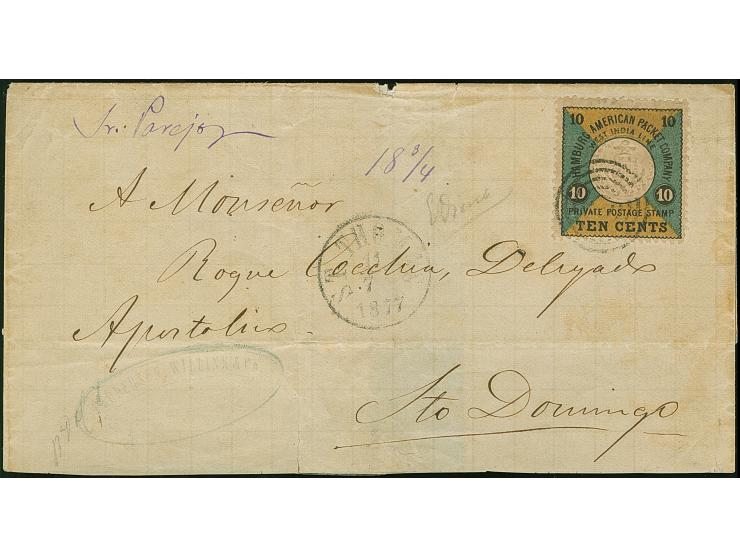 Sr. Parejo
18 3/4
10 10
HAMBURG AMERICAN PACKET COMPANY
WEST INDIA LINE
10 10
PRIVATE POSTAGE STAMP
TEN CENTS
A Monseñor
Roque Cocchia, Delegado
Apostolico
1877
Sto Domingo